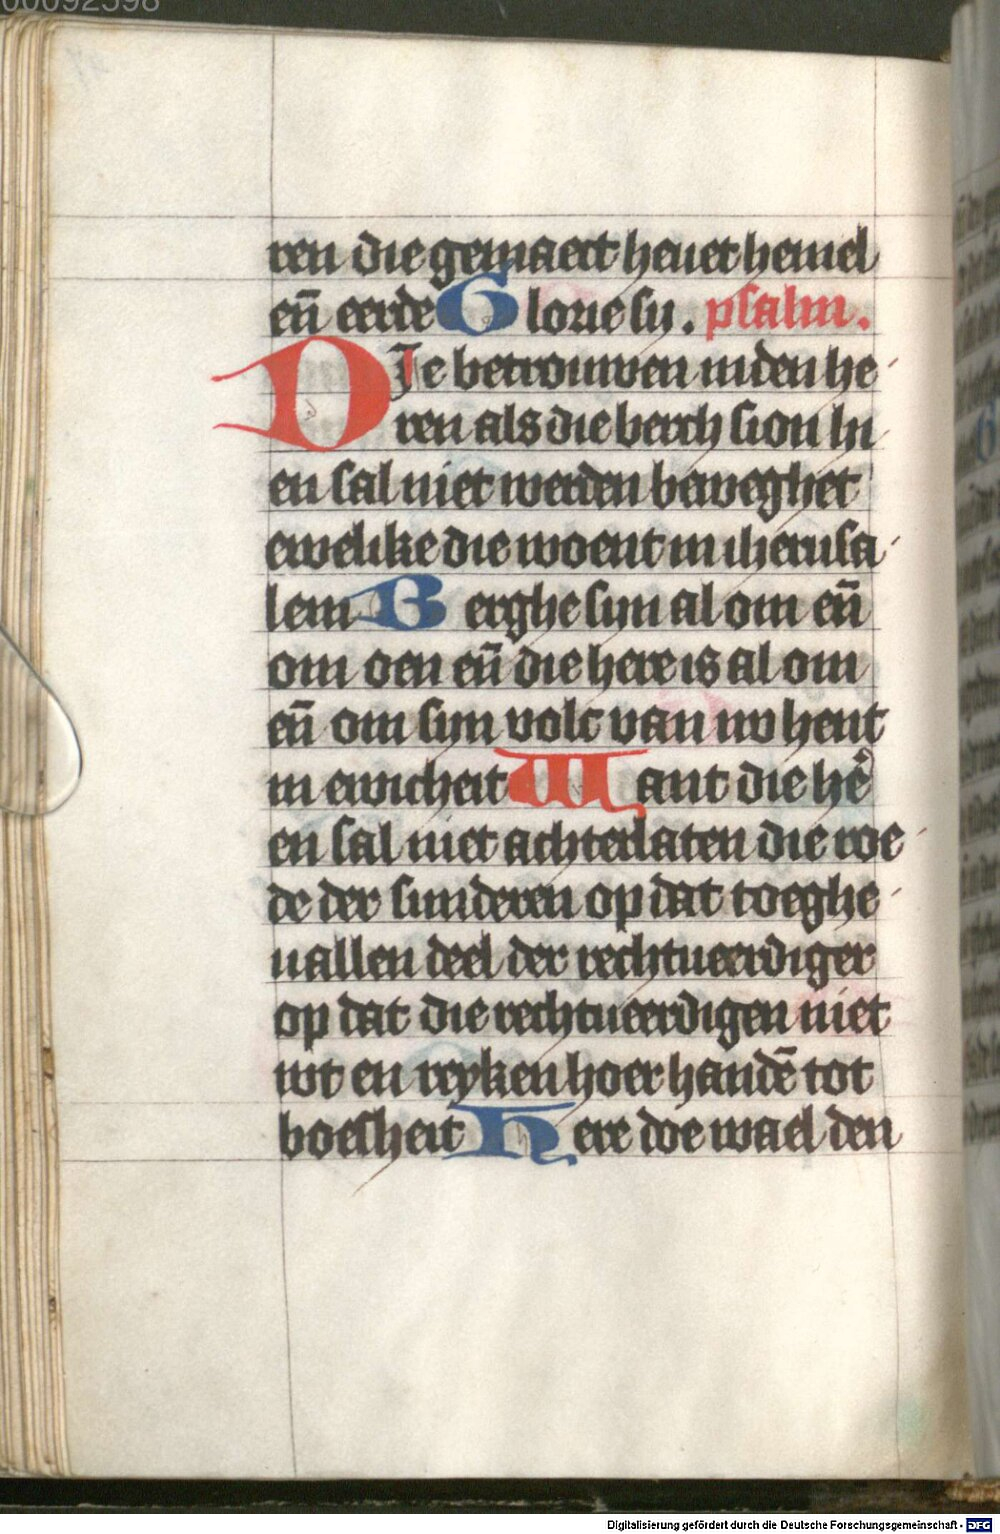 00092598
ren die gemaect heuet hemel
eñ eerde Glorie sy. psalm.
DIe betrouwen inden he
ren als die berch sion In
en sal niet werden beweghet
ewelike die woent in iherusa
lem Berghe syn al om eñ
om oen eñ die here is al om
eñ om syn volc van nv hent
in ewicheit Want die hē
en sal niet achterlaten die roe
de der sunderen op dat toeghe
uallen deel der rechtueerdiger
op dat die rechtueerdigen niet
wt en reyken hoer handē tot
boesheit Here doe wael den
Digitalisierung gefördert durch die Deutsche Forschungsgemeinschaft - DFG